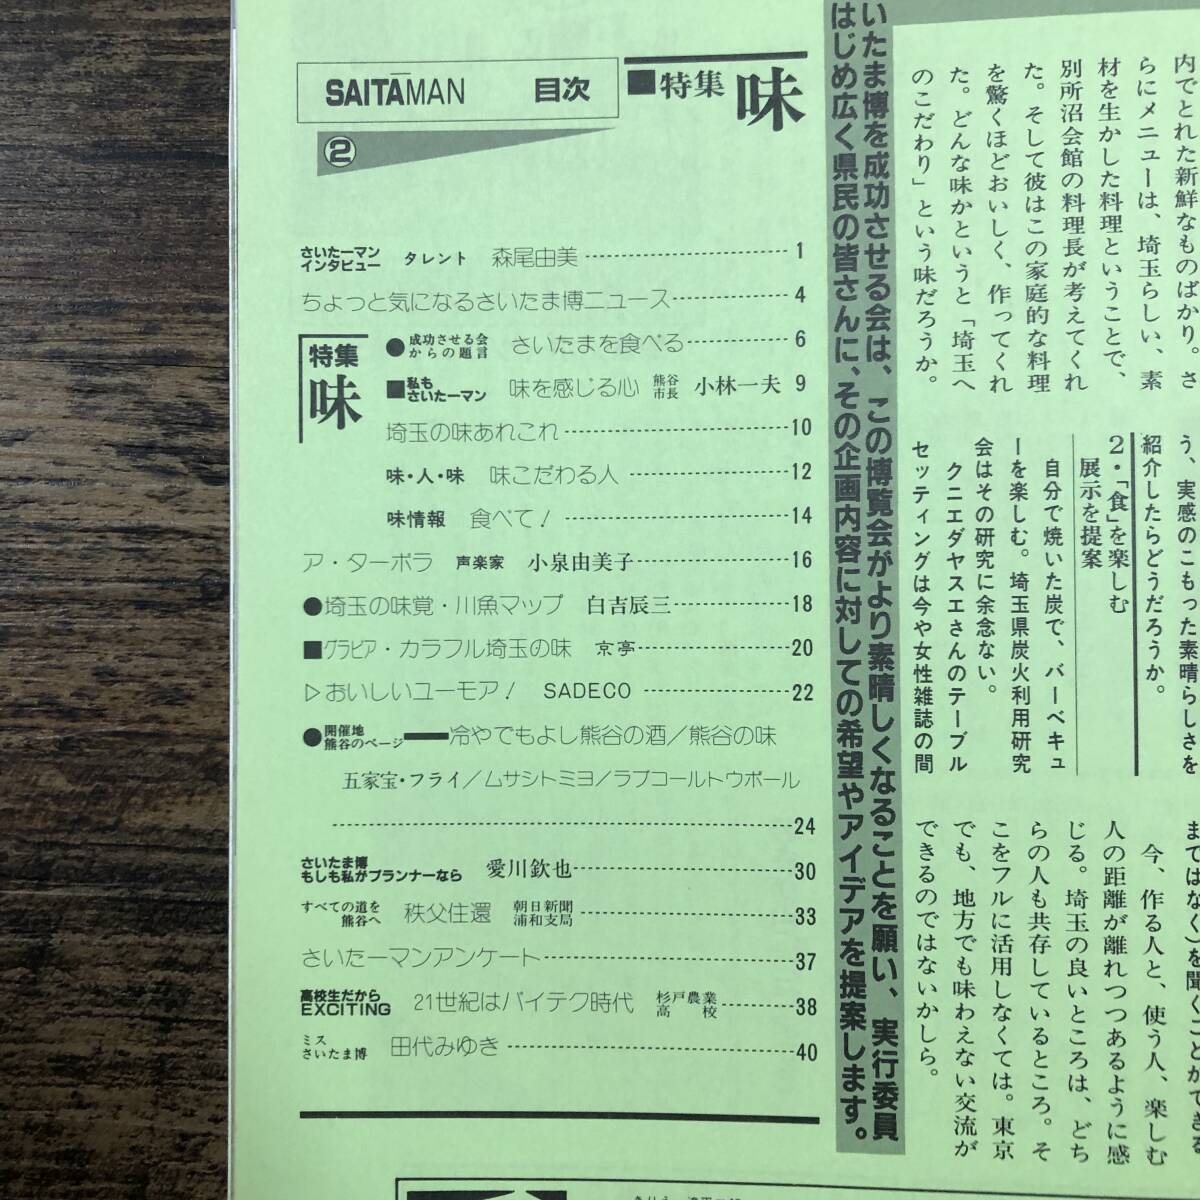 SAITAMAN 目次
②
■特集 味
さいたーマン
インタビュー タレント 森尾由美 1
ちょっと気になるさいたま博ニュース 4
特集
味
●成功させる会
からの題言 さいたまを食べる 6
■私も
さいたーマン 味を感じる心 熊谷
市長 小林一夫 9
埼玉の味あれこれ 10
味・人・味 味こだわる人 12
味情報 食べて! 14
ア・ターボラ 声楽家 小泉由美子 16
●埼玉の味覚・川魚マップ 白吉辰三 18
■グラビア・カラフル埼玉の味 京亭 20
▷おいしいユーモア! SADECO 22
●開催地
熊谷のページ━冷やでもよし熊谷の酒/熊谷の味
五家宝・フライ/ムサシトミヨ/ラブコールトウボール
24
さいたま博
もしも私がプランナーなら 愛川欽也 30
すべての道を
熊谷へ 秩父住還 朝日新聞
浦和支局 33
さいたーマンアンケート 37
高校生だから
EXCITING 21世紀はバイテク時代 杉戸農業
高校 38
ミス
さいたま博 田代みゆき 40
いたま博を成功させる会は、この博覧会がより素晴しくなることを願い、実行委員
はじめ広く県民の皆さんに、その企画内容に対しての希望やアイデアを提案します。
内でとれた新鮮なものばかり。さ
らにメニューは、埼玉らしい、素
材を生かした料理ということで、
別所沼会館の料理長が考えてくれ
た。そして彼はこの家庭的な料理
を驚くほどおいしく、作ってくれ
た。どんな味かというと「埼玉へ
のこだわり」という味だろうか。
う、実感のこもった素晴らしさを
紹介したらどうだろうか。
2・「食」を楽しむ
展示を提案
自分で焼いた炭で、バーベキュ
ーを楽しむ。埼玉県炭火利用研究
会はその研究に余念ない。
クニエダヤスエさんのテーブル
セッティングは今や女性雑誌の間
まではなく)を聞くことができる
今、作る人と、使う人、楽しむ
人の距離が離れつつあるように感
じる。埼玉の良いところは、どち
らの人も共存しているところ。そ
こをフルに活用しなくては。東京
でも、地方でも味わえない交流が
できるのではないかしら。